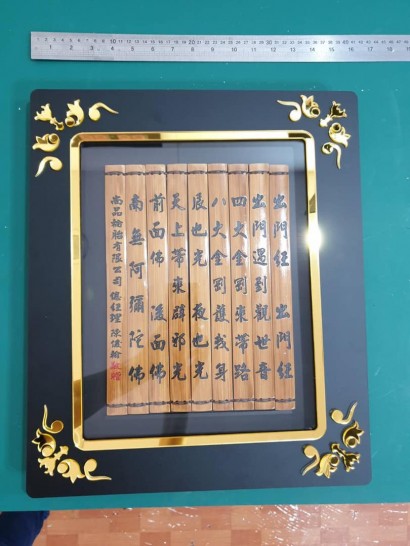 出門經 出門經
出門遇到觀世音
四大金剛來帶路
八大金剛護我身
辰也光 夜也光
天上帶來辟邪光
前面佛 後面佛
南無阿彌陀佛
尚品輪胎有限公司 總經理 陳俊翰 敬贈